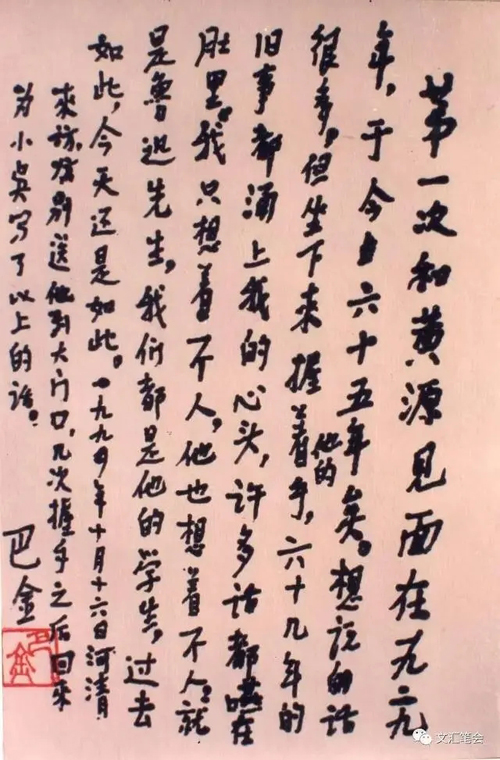 第一次和黄源见面在一九二九
年，于今六十五年矣。想说的话
很多，但坐下来握着他的手，六十几年的
旧事都涌上我的心头，许多话都咽在
肚里。我只想着一个人，他也想着一个人。就
是鲁迅先生，我们都是他的学生，过去
如此，今天还是如此。一九九四年十月十六日河清
来访，别送他到大门口，几次握手之后回来
为小吴写了以上的话。
巴金
巴金
文汇笔会